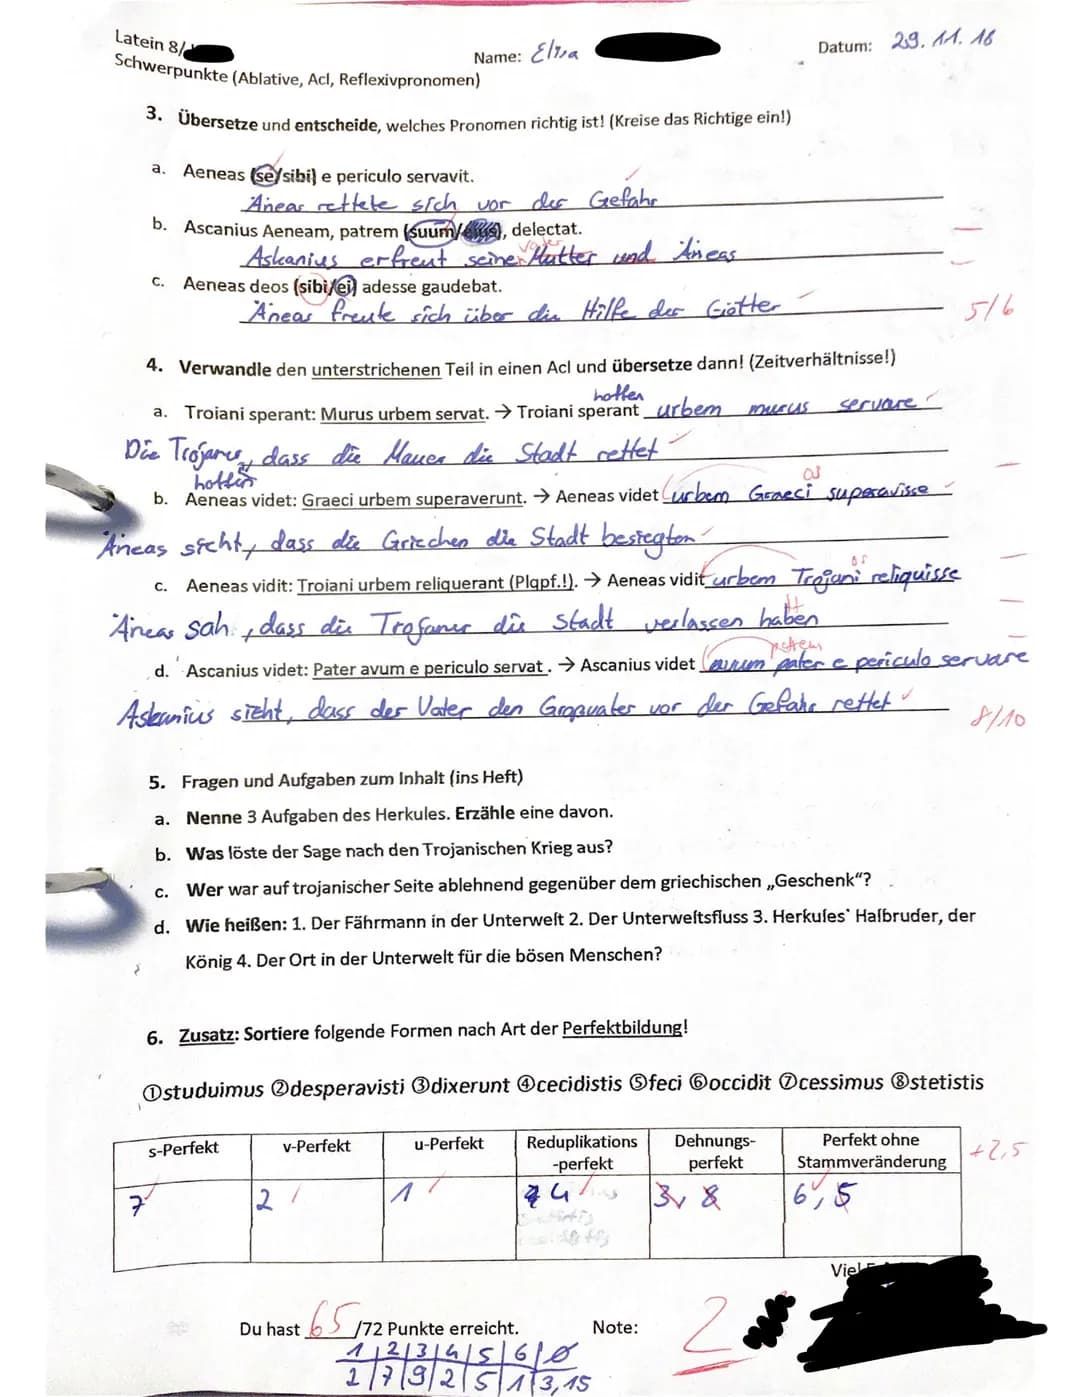 Latein 8/
Name: Elisa
Datum: 29.11.16
Schwerpunkte (Ablative, AcI, Reflexivpronomen)
3. Übersetze und entscheide, welches Pronomen richtig ist! (Kreise das Richtige ein!)
a. Aeneas (se/sibi) e periculo servavit.
Äneas rettete sich vor der Gefahr
b. Ascanius Aeneam, patrem (suum/eius), delectat.
Vater
Askanius erfreut seine Mutter und Äneas
c. Aeneas deos (sibi/ei) adesse gaudebat.
Äneas freute sich über die Hilfe der Götter
5/6
4. Verwandle den unterstrichenen Teil in einen AcI und übersetze dann! (Zeitverhältnisse!)
hoffen
a. Troiani sperant: Murus urbem servat. → Troiani sperant urbem murus servare
Die Trojaner, dass die Mauer die Stadt rettet
hoffen
os
b. Aeneas videt: Graeci urbem superaverunt. → Aeneas videt urbem Graeci superavisse
Äneas sieht, dass die Griechen die Stadt besiegten
os
c. Aeneas vidit: Troiani urbem reliquerant (Plqpf.!). → Aeneas vidit urbem Trojani reliquisse
tt
Äneas sah, dass die Trojaner die Stadt verlassen haben
patrem
d. Ascanius videt: Pater avum e periculo servat. → Ascanius videt avum pater e periculo servare
Askanius sieht, dass der Vater den Großvater vor der Gefahr rettet
8/10
5. Fragen und Aufgaben zum Inhalt (ins Heft)
a. Nenne 3 Aufgaben des Herkules. Erzähle eine davon.
b. Was löste der Sage nach den Trojanischen Krieg aus?
c. Wer war auf trojanischer Seite ablehnend gegenüber dem griechischen „Geschenk“?
d. Wie heißen: 1. Der Fährmann in der Unterwelt 2. Der Unterweltsfluss 3. Herkules' Halbruder, der
König 4. Der Ort in der Unterwelt für die bösen Menschen?
6. Zusatz: Sortiere folgende Formen nach Art der Perfektbildung!
①studuimus ②desperavisti ③dixerunt ④cecidistis ⑤feci ⑥occidit ⑦cessimus ⑧stetistis
s-Perfekt
v-Perfekt
u-Perfekt
Reduplikations
-perfekt
Dehnungs-
perfekt
Perfekt ohne
Stammveränderung
+2,5
7
2
1
4
3, 8
6, 5
Viel
Du hast 65 /72 Punkte erreicht.
Note: 2
1 | 2 | 3 | 4 | 5 | 6 | Ø
2 | 7 | 9 | 2 | 5 | 1 | 3,15